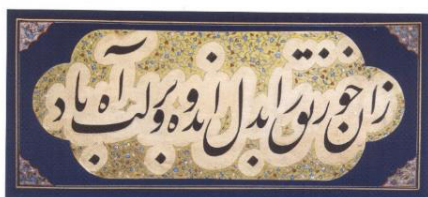 زان خور تو را بدل اندوه و بر لب آه باد